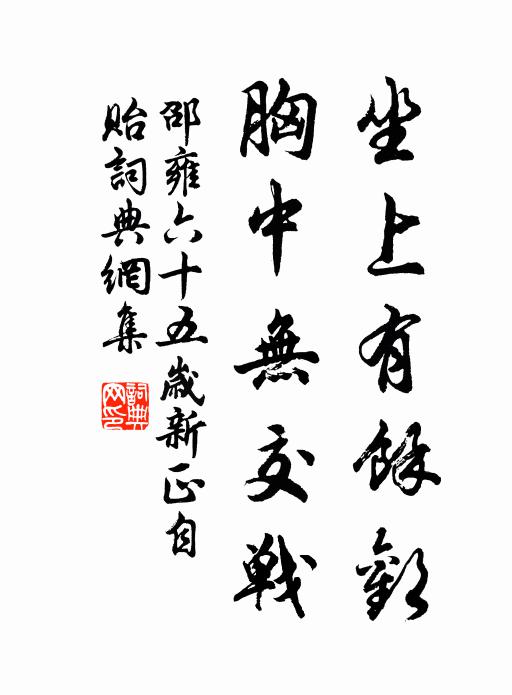 坐上有餘歡
胸中無交戰
邵雍六十五歲新正自
貽詞典網集
詞典網印